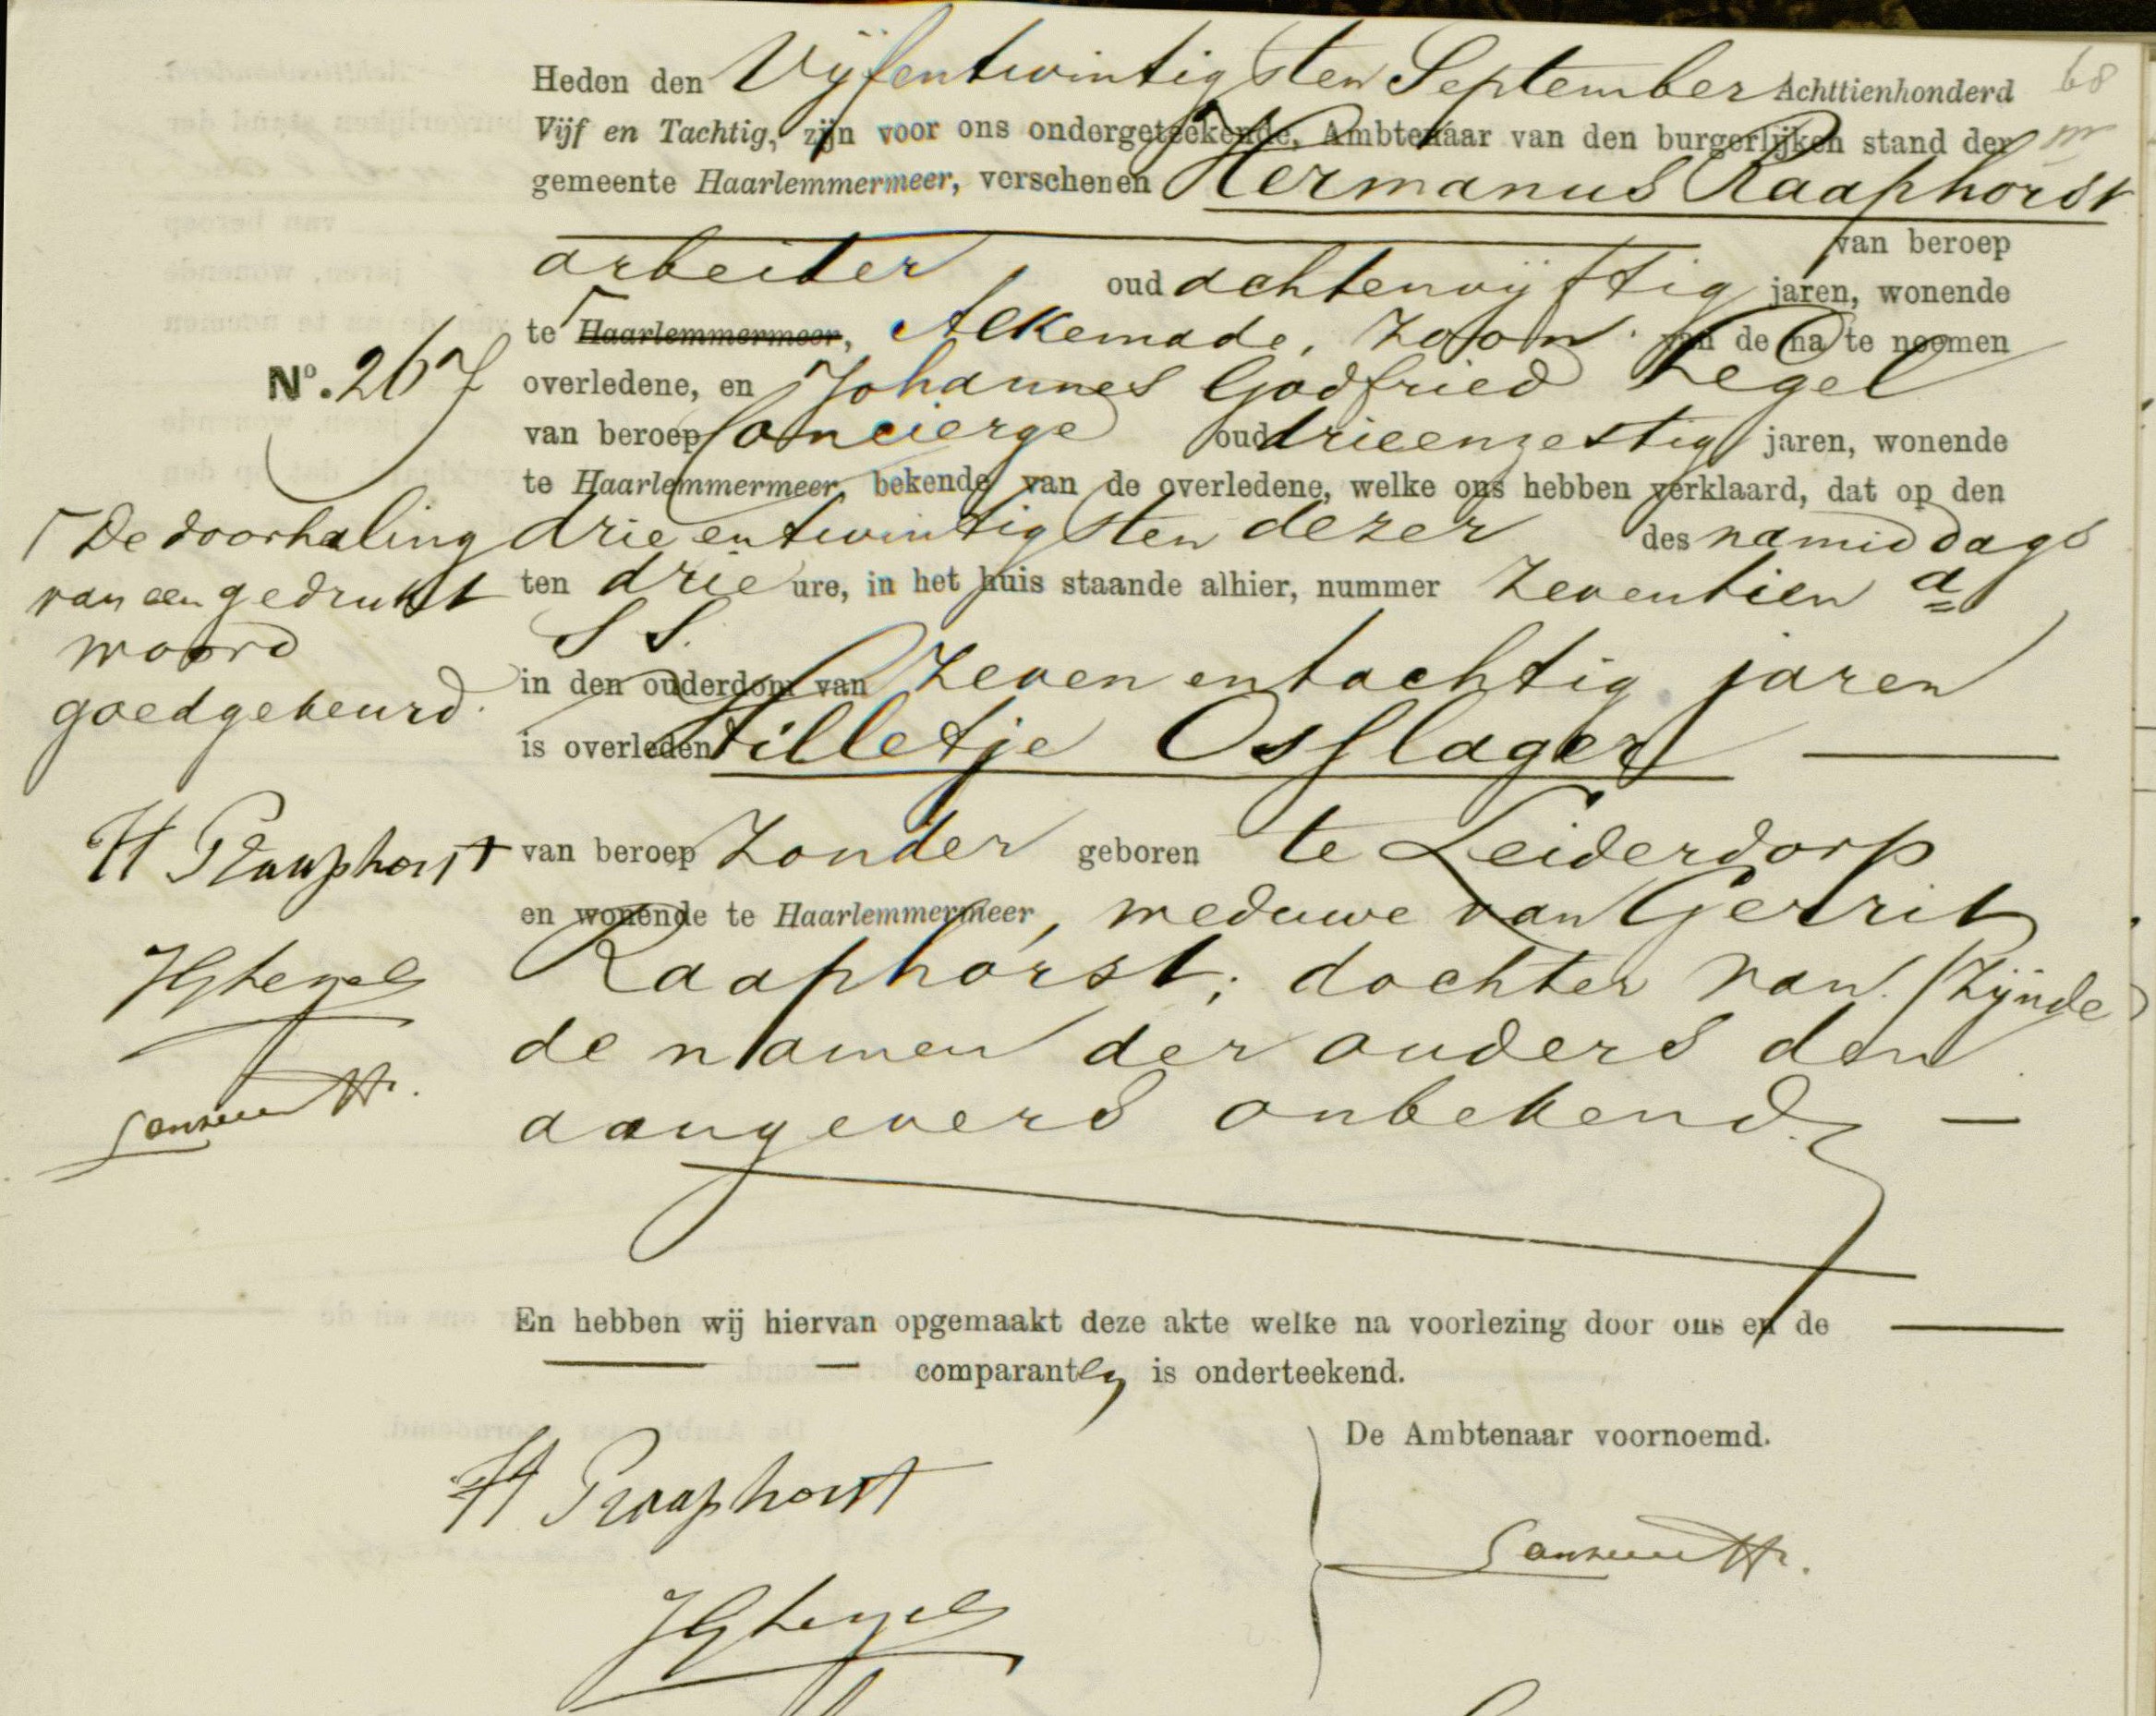 68
Heden den Vijfentwintigsten September Achttienhonderd
Vijf en Tachtig, zijn voor ons ondergeteekende, Ambtenaar van den burgerlijken stand der
gemeente Haarlemmermeer, verschenen Hermanus Raaphorst
van beroep
arbeider oud achtenvijftig jaren, wonende
te Haarlemmermeer, Alkemade, zoon van de na te noemen
No. 267
overledene, en Johannes Godfried Zegel
van beroep Concierge oud drieenzestig jaren, wonende
te Haarlemmermeer, bekende van de overledene, welke ons hebben verklaard, dat op den
drieentwintigsten dezer des namiddags
ten drie ure, in het huis staande alhier, nummer zeventien a
S S.
in den ouderdom van zevenentachtig jaren
is overleden Hilletje Osslager
van beroep zonder geboren te Leiderdorp
en wonende te Haarlemmermeer, weduwe van Gerrit
Raaphorst; dochter van (zijnde
de namen der ouders den
aangevers onbekend
De doorhaling
van een gedrukt
woord
goedgekeurd.
H Raaphorst
JGZegel
En hebben wij hiervan opgemaakt deze akte welke na voorlezing door ons en de
comparanten is onderteekend.
De Ambtenaar voornoemd.
H Raaphorst
JGZegel